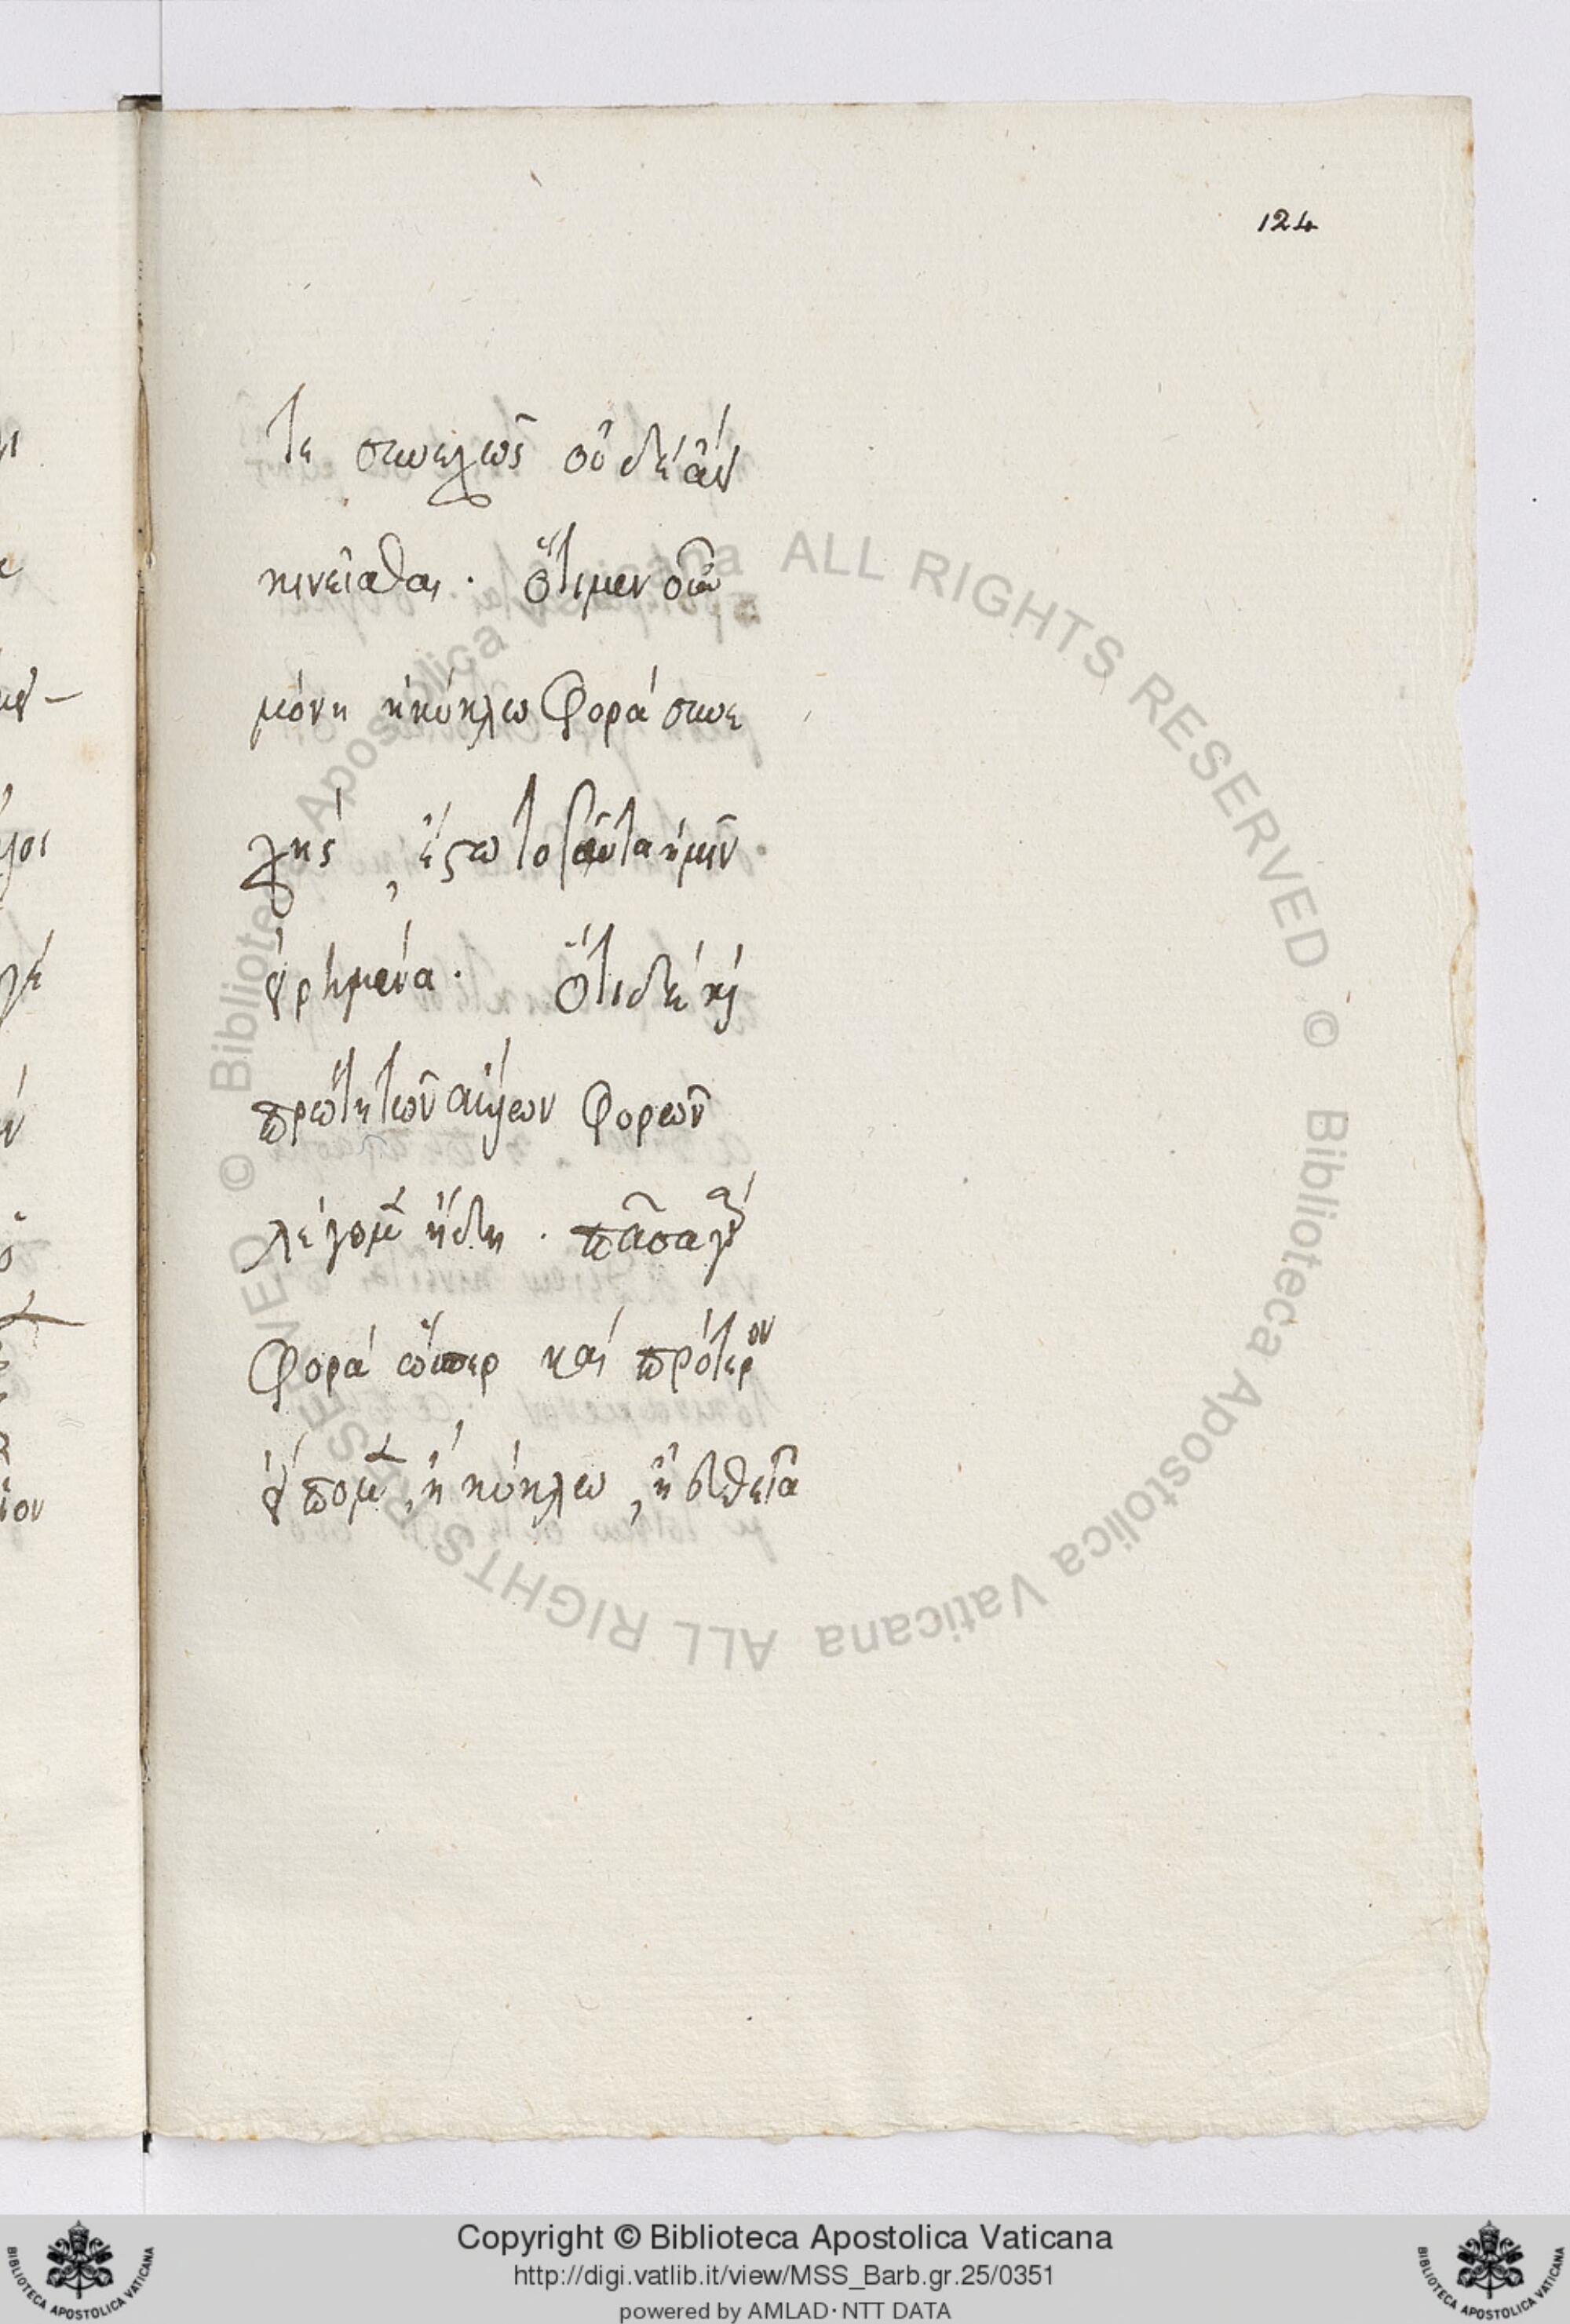 124
τε συνεχῶς οὐδὲ ἀεὶ
κινεῖσθαι. ὅτι μὲν οὖν
μόνη ἡ κύκλω φορὰ συνε
χὴς, ἔστω τοσαῦτα ἡμῖν
εἰρημένα. ὅτι δὲ καὶ
πρώτη τῶν ἄλλων φορῶν
λέγομεν ἤδη. πᾶσα γὰρ
φορὰ ὥσπερ καὶ πρότερον
εἴπομεν, ἢ κύκλω, ἢ ἐπ' εὐθεῖα
Biblioteca Apostolica Vaticana ALL RIGHTS RESERVED ©
Biblioteca Apostolica Vaticana ALL RIGHTS RESERVED ©
Copyright © Biblioteca Apostolica Vaticana
http://digi.vatlib.it/view/MSS_Barb.gr.25/0351
powered by AMLAD · NTT DATA
BIBLIOTECA APOSTOLICA VATICANA
BIBLIOTECA APOSTOLICA VATICANA